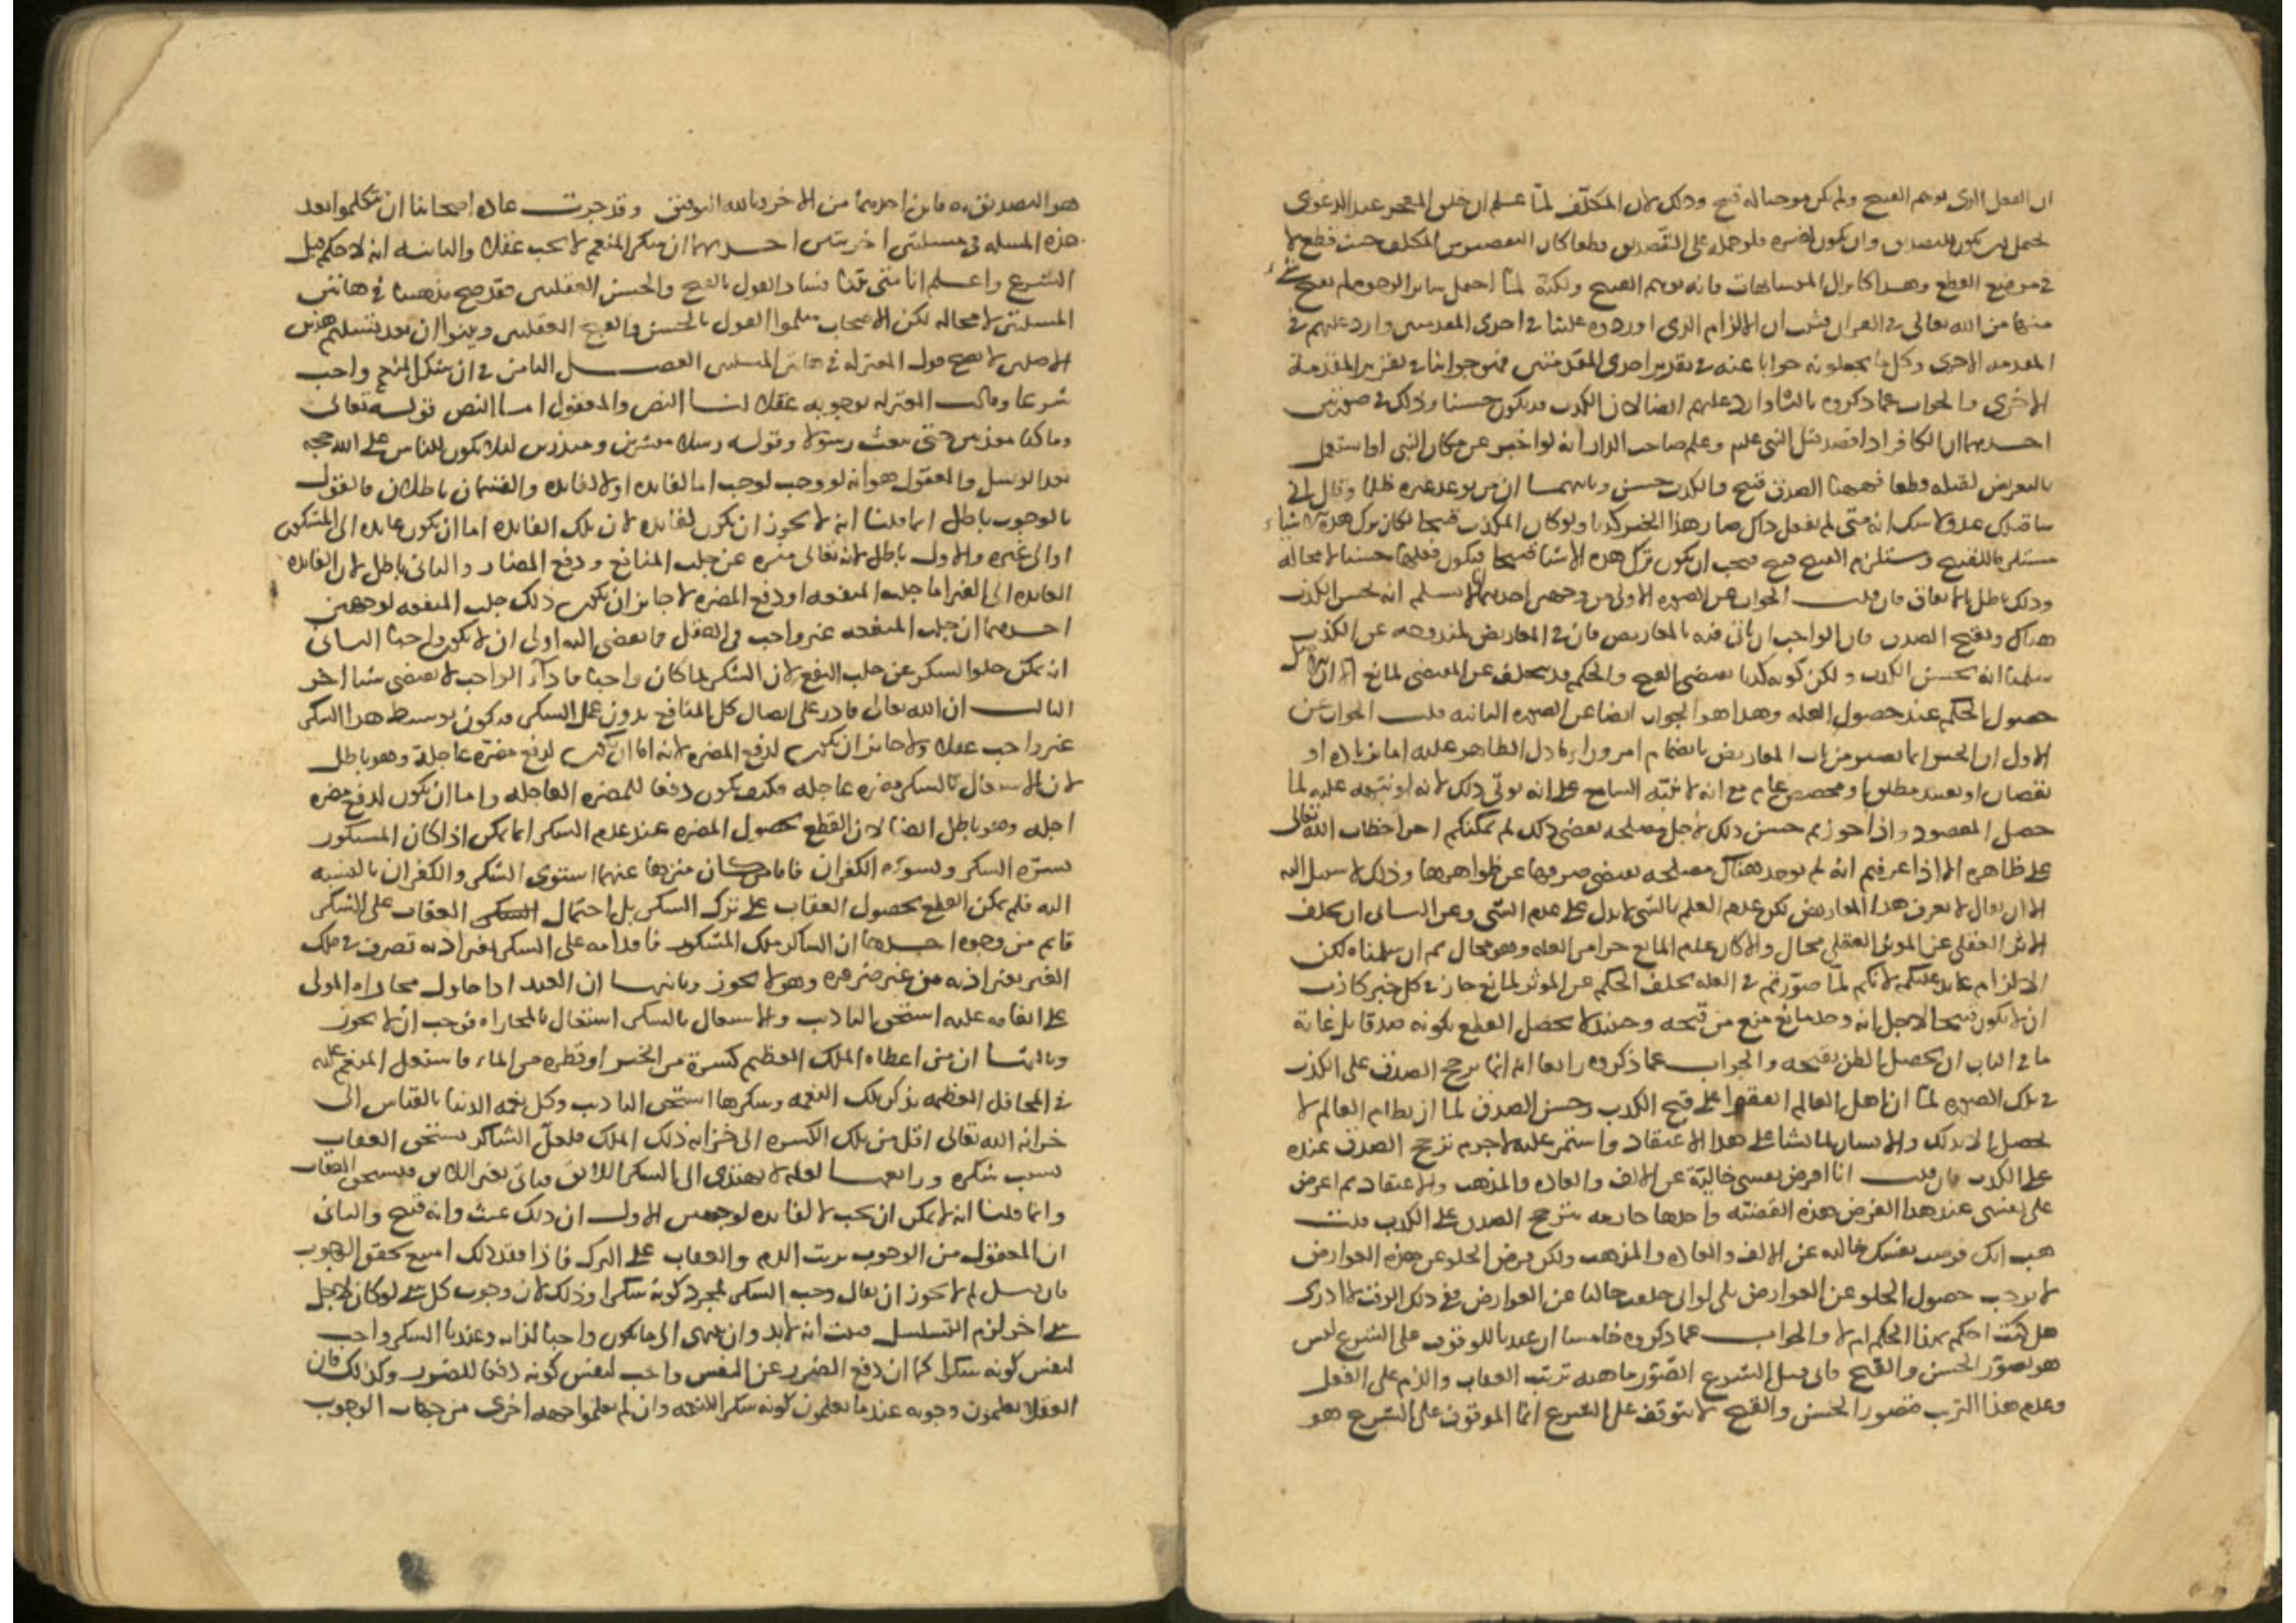 ان الفعل الذى يوهم القبيح ولم يكن موجبا له قبيح وذلك لان المكلف لما علم ان خلق المعجز عند الدعوى
يحتمل ان يكون للتصديق وان يكون لغيره فلو حمله على التصديق قطعا كان التقصير من المكلف حيث قطع لا
فى موضع القطع وهذا كانزال المتشابهات فانه يوهم القبيح ولكنه لما احتمل سائر الوجوه لم يقبح شئ
منها من الله تعالى فى القران فثبت ان الالزام الذى اوردوه علينا فى احدى المقدمتين وارد عليهم فى
المقدمه الاخرى وكل ما يجعلونه جوابا عنه فى تقدير احدى المقدمتين فهو جوابنا فى تقرير المقدمة
الاخرى والجواب عما ذكروه ثالثا وارد عليهم ايضا لان الكذب قد يكون حسنا وذلك فى صورتين
احديهما ان الكافر اذا قصد قتل النبى عليه وعلم صاحب الدار انه لو اخبر عن مكان النبى او استعمل
بالتعريض لقتله قطعا فههنا الصدق قبيح والكذب حسن وثانيهما ان من توعد غيره ظلما وقال انى
ساقتلك غدا ولا شك انه متى لم يفعل ذلك صار هذا الخبر كذبا ولو كان الكذب قبيحا لكان ترك هذه الاشياء
مستلزما للقبيح ومستلزم القبيح قبيح فيجب ان يكون ترك هذه الاشيا قبيحا فيكون فعلها حسنا لا محاله
وذلك باطل بالاتفاق فان قلت الجواب عن الصوره الاولى من وجهين احديهما لا نسلم انه يحسن الكذب
هناك ويقبح الصدق فان الواجب ان ياتى فيه بالمعاريض فان فى المعاريض لمندوحه عن الكذب
سلمنا انه يحسن الكذب ولكن كونه كذبا يقتضى القبح والحكم قد يتخلف عن المقتضى لمانع
حصول الحكم عند حصول العله وهذا هو الجواب ايضا عن الصوره الثانيه قلت الجواب عن
الاول ان الخبر انما يصير من باب المعاريض بانضمام امر وراء ما دل الظاهر عليه اما زياده او
نقصان او تقييد مطلق او تخصيص عام مع انه لا ينبه السامع على انه نوى ذلك لانه لو نبهه عليه لما
حصل المقصود واذا جوزتم حسن ذلك لاجل مصلحه تقتضى ذلك لم يمكنكم اجرا خطاب الله تعالى
على ظاهره الا اذا عرفتم انه لم يوجد هناك مصلحه تقتضى صرفها عن ظواهرها وذلك لا سبيل اليه
الا ان يقال لا نعرف هذا المعارض لكن عدم العلم بالشى لا يدل على عدم الشى وعن الثانى ان تخلف
الاثر العقلى عن الموثر العقلى محال والا كان عدم المانع جزا من العله وهو محال ثم ان سلمناه لكن
الالزام عايد عليكم لانكم لما جوزتم فى العله تخلف الحكم عن الموثر لمانع جاز فى كل خبر كاذب
ان لا يكون قبيحا لاجل انه وجد مانع منع من قبحه وحينئذ لا يحصل القطع بكونه صدقا بل غاية
ما فى الباب ان يحصل الظن بقبحه والجواب عما ذكروه رابعا انه انما ترجح الصدق على الكذب
فى تلك الصوره لما ان اهل العالم اتفقوا على قبح الكذب وحسن الصدق لما ان نظام العالم لا
يحصل الا بذلك والانسان لما نشا على هذا الاعتقاد واستمر عليه لا جرم ترجح الصدق عنده
على الكذب فان قلت انا افرض نفسى خالية عن الالف والعاده والمذهب والاعتقاد ثم اعرض
على نفسى عند هذا الفرض هذه القضيه واجدها جازمه بترجح الصدق على الكذب قلت
هب انك فرضت نفسك خاليه عن الالف والعاده والمذهب ولكن فرض الخلو عن هذه العوارض
لا يوجب حصول الخلو عن العوارض بلى لو انى خلقت خاليا عن العوارض ففى ذلك الوقت لا ادرى
هل كنت احكم بهذا الحكم ام لا والجواب عما ذكروه خامسا ان عندنا الموقوف على الشرع ليس
هو تصور الحسن والقبح فانى قبل الشرع اتصور ماهيه ترتب العقاب والذم على الفعل
وعدم هذا الترتب فتصور الحسن والقبح لا يتوقف على الشرع انما الموقوف على الشرع هو
هو التصديق به فاين احدهما من الاخر وبالله التوفيق وقد جرت عادة اصحابنا ان يتكلموا بعد
هذه المسله فى مسئلتين اخريين احديهما ان شكر المنعم لا يجب عقلا والثانيه انه لا حكم قبل
الشرع واعلم انا متى بينا فساد القول بالقبح والحسن العقليين فقد صح مذهبنا فى هاتين
المسلتين لا محاله لكن الاصحاب سلموا القول بالحسن والقبح العقليين وبينوا ان بعد تسليم هذين
الاصلين لا يصح قول المعتزله فى هاتين المسلتين الفصل الثامن فى ان شكر المنعم واجب
شرعا وقالت المعتزله بوجوبه عقلا لنا النص والمعقول اما النص قوله تعالى
وما كنا معذبين حتى نبعث رسولا وقوله رسلا مبشرين ومنذرين لئلا يكون للناس على الله حجه
بعد الرسل والمعقول هو انه لو وجب لوجب اما لفائده او لا لفائده والقسمان باطلان فالقول
بالوجوب باطل انما قلنا انه لا يجوز ان يكون لفائده لان تلك الفائده اما ان يكون عائده الى المشكور
او الى غيره والاول باطل لانه تعالى منزه عن جلب المنافع ودفع المضار والثانى باطل لان الفائده
العائده الى الغير اما جلب المنفعه او دفع المضره لا جائز ان يكون ذلك جلب المنفعه لوجهين
احدهما ان جلب المنفعه غير واجب فى العقل فما يفضى اليه اولى ان لا يكون واجبا الثانى
انه يمكن خلو الشكر عن جلب النفع لان الشكر لما كان واجبا فادآء الواجب لا يقتضى شيا اخر
الثالث ان الله تعالى قادر على ايصال كل المنافع بدون عمل الشكر فيكون توسيط هذا الشكر
غير واجب عقلا ولا جائز ان يكون لدفع المضره لانه اما ان يكون لدفع مضرة عاجلة وهو باطل
لان الاشتغال بالشكر مضره عاجله فكيف يكون دفعا للمضره العاجله واما ان يكون لدفع مضره
اجله وهو باطل ايضا لان القطع بحصول المضره عند عدم الشكر انما يمكن اذا كان المشكور
يسره الشكر ويسوءه الكفران فاما من كان منزها عنهما استوى الشكر والكفران بالنسبه
اليه فلم يمكن القطع بحصول العقاب على ترك الشكر بل احتمال العقاب على الشكر
قايم من وجوه احدها ان الشاكر ملك المشكور فاقدامه على الشكر بغير اذنه تصرف فى ملك
الغير بغير اذنه من غير ضروره وهو لا يجوز وثانيها ان العبد اذا حاول مجازاه المولى
على انعامه عليه استحق التاديب والاشتغال بالشكر اشتغال بالمجازاه فوجب ان لا يجوز
وثالثها ان من اعطاه الملك العظيم كسرة من الخبز او قطره من الماء فاشتغل المنعم عليه
فى المحافل العظيمه بذكر تلك النعمه وشكرها استحق التاديب وكل نعمه الدنيا بالقياس الى
خزانه الله تعالى اقل من تلك الكسره الى خزانه ذلك الملك فلعل الشاكر يستحق العقاب
بسبب شكره ورابعها لعله لا يهتدى الى الشكر اللائق فياتى بغير اللائق فيستحق العقاب
وانما قلنا انه لا يمكن ان يجب لا لفائده لوجهين الاول ان ذلك عبث وانه قبيح والثانى
ان المعقول من الوجوب ترتب الذم والعقاب على الترك فاذا فقد ذلك امتنع تحقق الوجوب
فان قيل لم لا يجوز ان يقال وجب الشكر لمجرد كونه شكرا وذلك لان وجوب كل شئ لو كان لاجل
شئ اخر لزم التسلسل فثبت انه لابد وان ينتهى الى ما يكون واجبا لذاته وعندنا الشكر واجب
لنفس كونه شكرا كما ان دفع الضرر عن النفس واجب لنفس كونه دفعا للضرر وكذلك فان
العقلا يعلمون وجوبه عندما يعلمون كونه شكرا للنعمه وان لم يعلموا جهه اخرى من جهات الوجوب